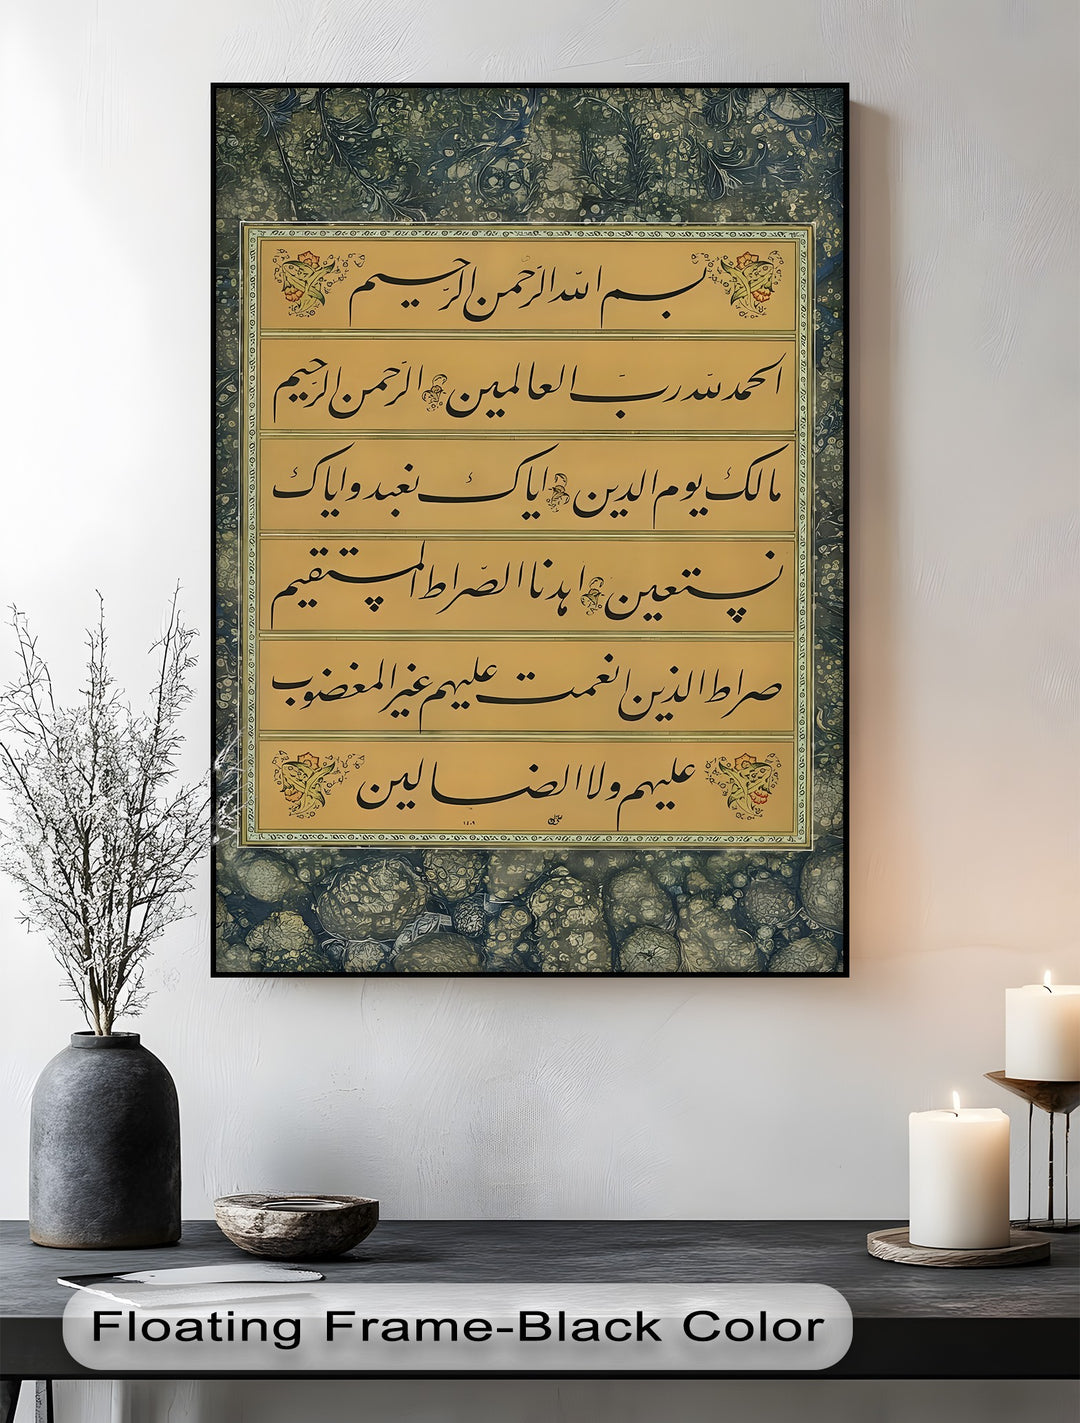 بسم الله الرَّحمن الرَّحیم
الحمد لله ربّ العالمین الرَّحمن الرَّحیم
مالک یوم الدین ایاک نعبد وایاک
نستعین اهدنا الصّراط المستقیم
صراط الذین انعمت علیهم غیر المغضوب
علیهم ولا الضالین
١٤٠٩
Floating Frame-Black Color